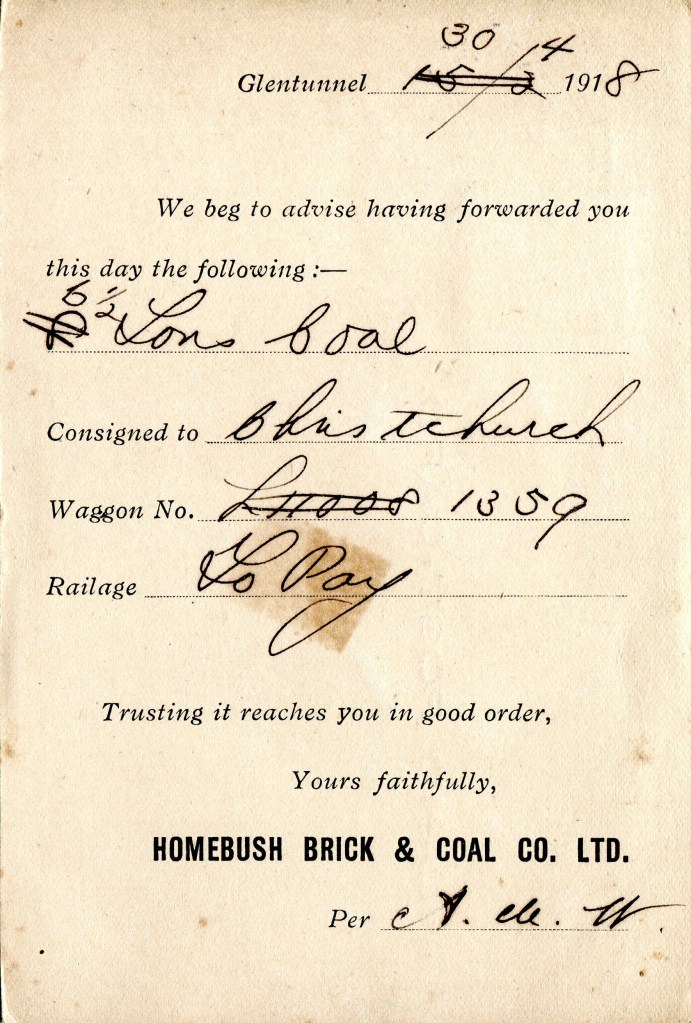 30/4
Glentunnel 15 2 1918
We beg to advise having forwarded you
this day the following :—
6½ Tons Coal
Consigned to Christchurch
Waggon No. L11008 1359
Railage To Pay
Trusting it reaches you in good order,
Yours faithfully,
HOMEBUSH BRICK & COAL CO. LTD.
Per A.